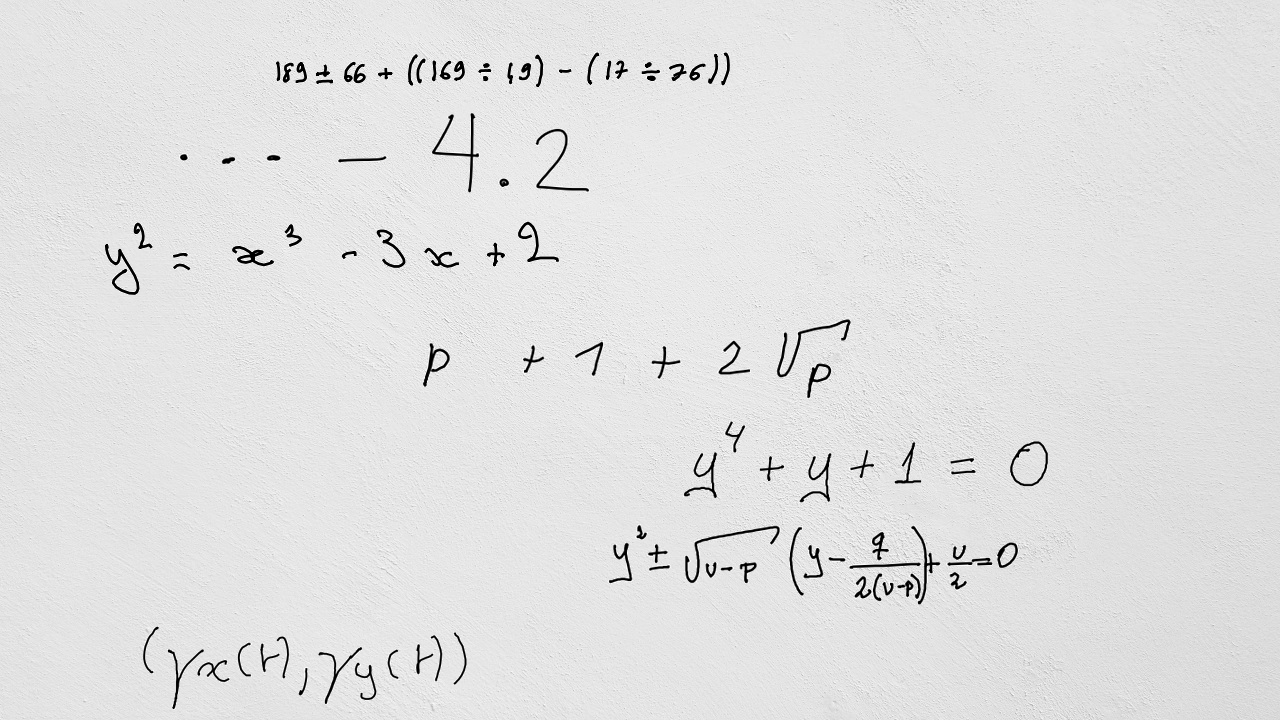 189 ± 66 + ((169 ÷ 19) - (17 ÷ 76))
... - 4.2
y² = x³ - 3x + 2
p + 1 + 2√p
y⁴ + y + 1 = 0
y² ± √(u-p) (y - q/(2(u-p))) + u/2 = 0
(γx(t), γy(t))